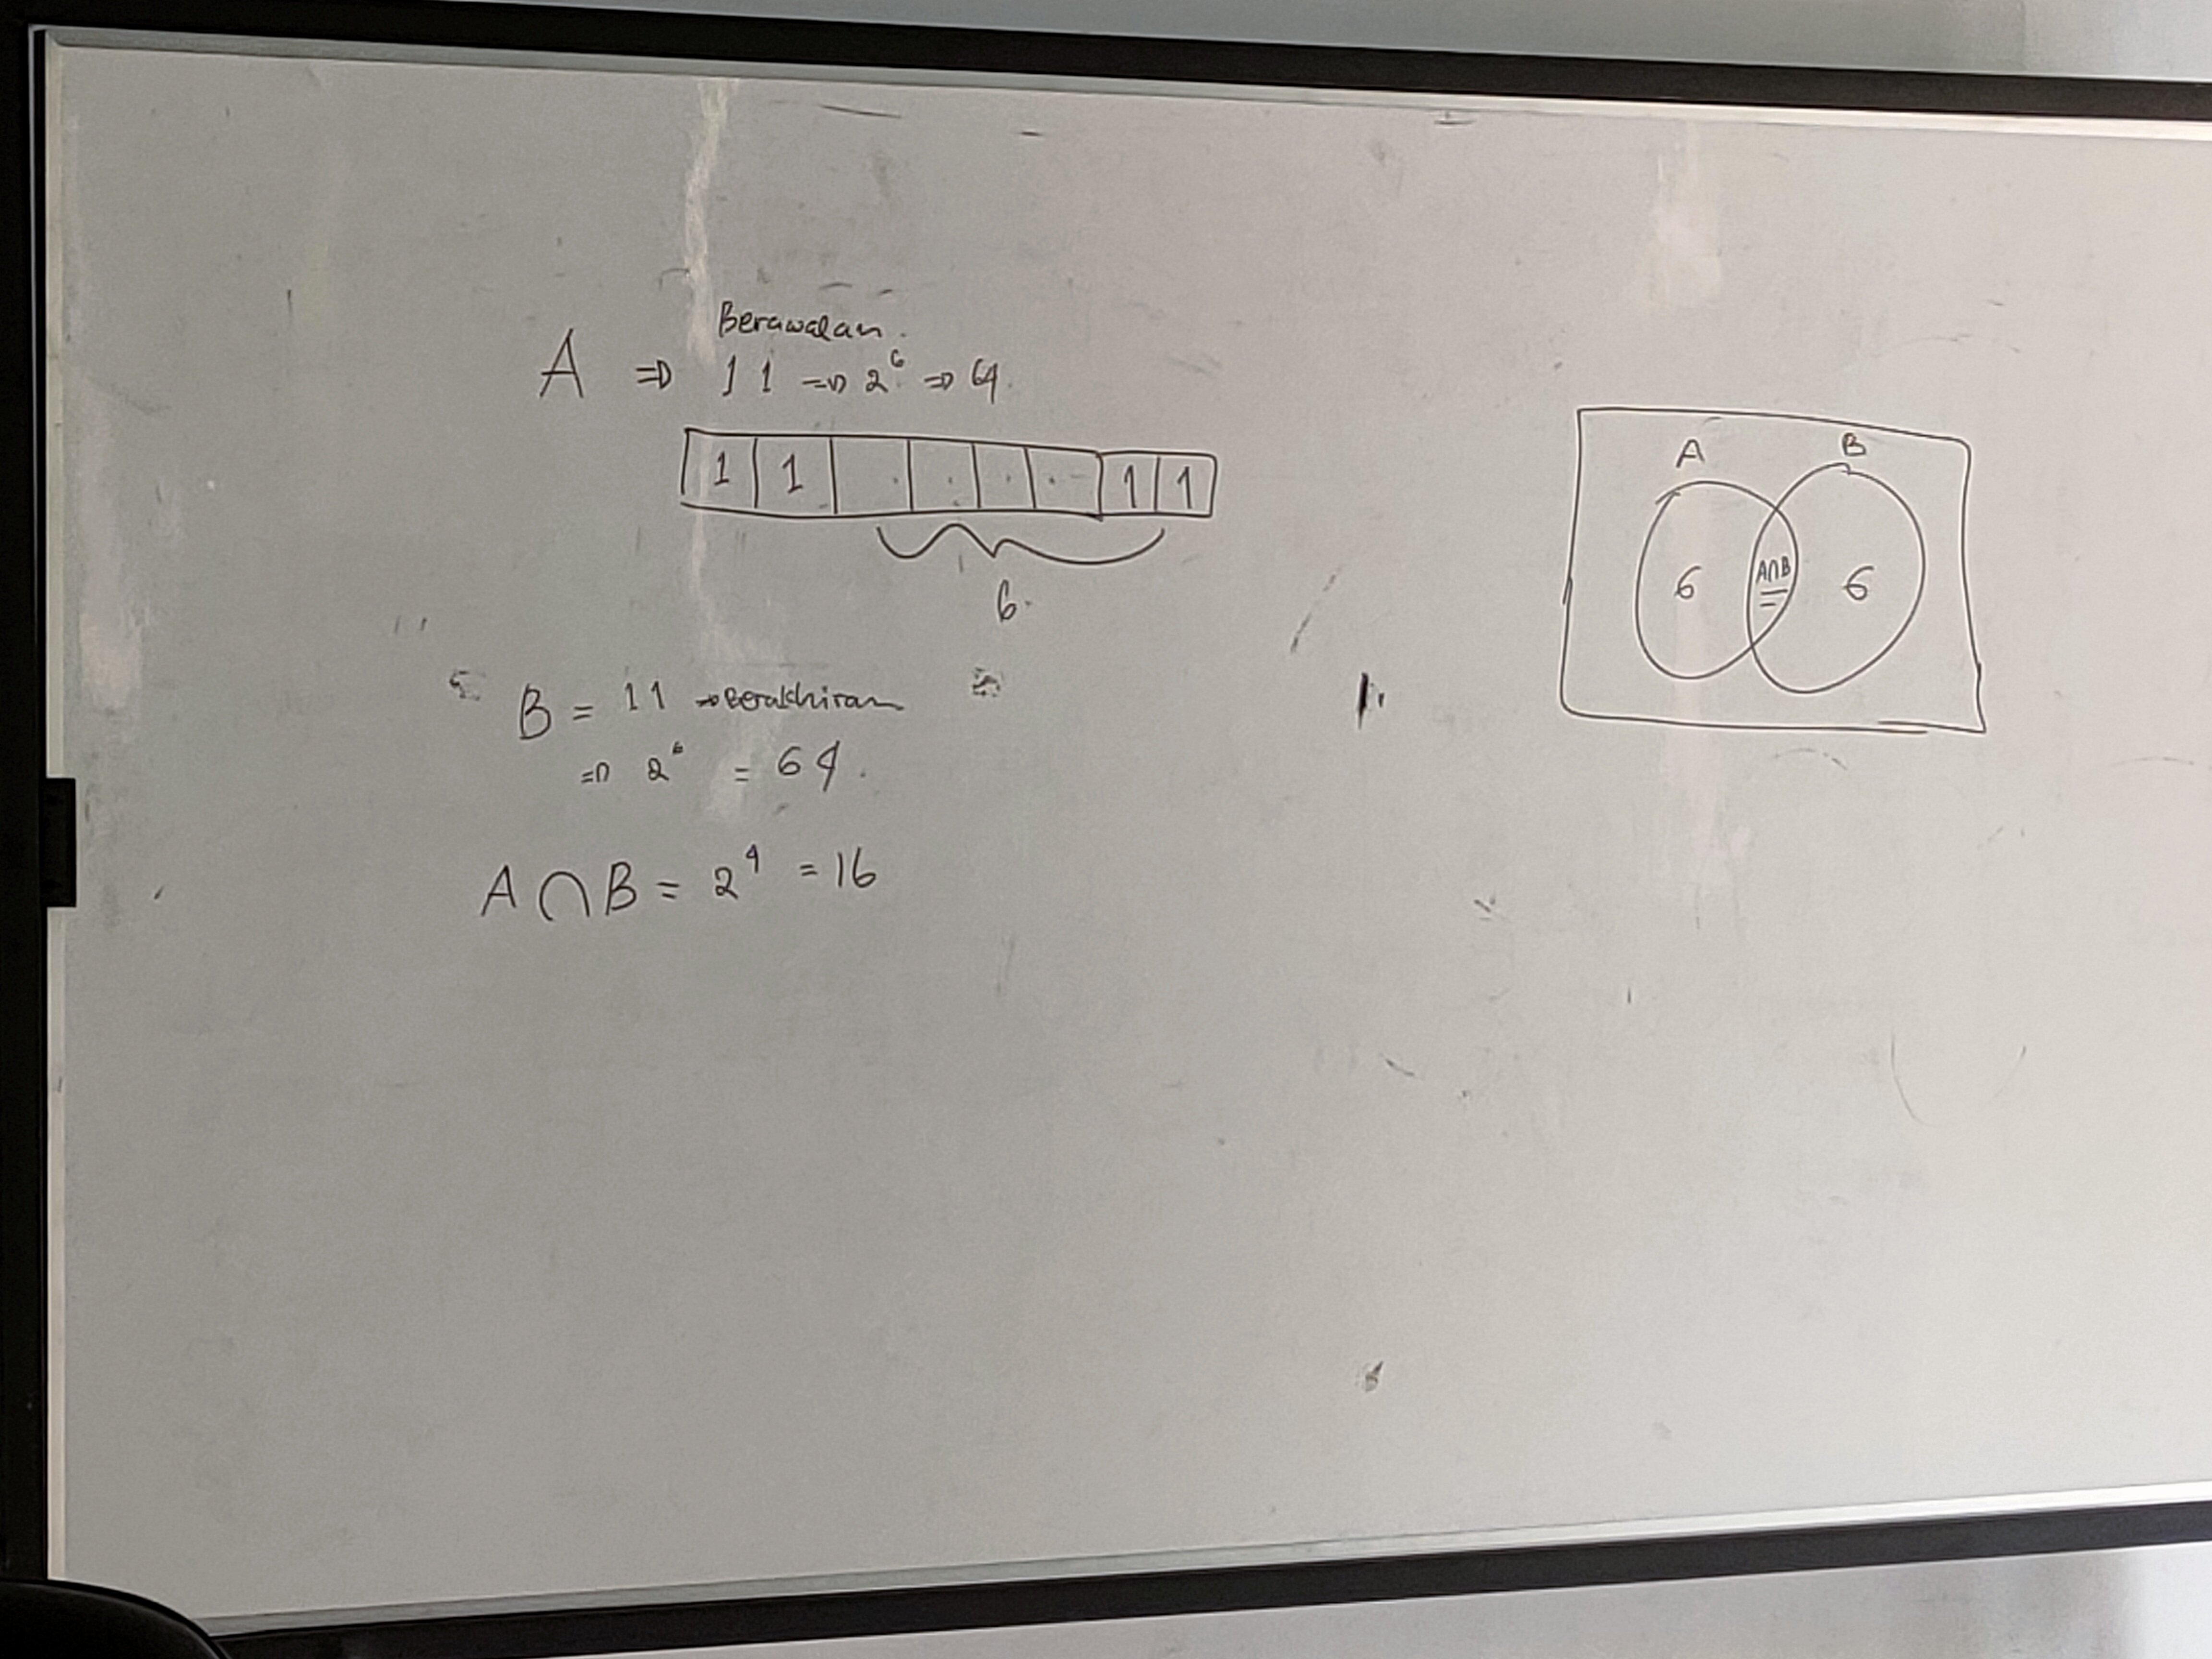 Berawalan.
A => 11 => 2⁶ => 64.
1 1 . . . . 1 1
6.
B = 11 → Berakhiran
=> 2⁶ = 64.
A ∩ B = 2⁴ = 16
A B
6 A∩B 6